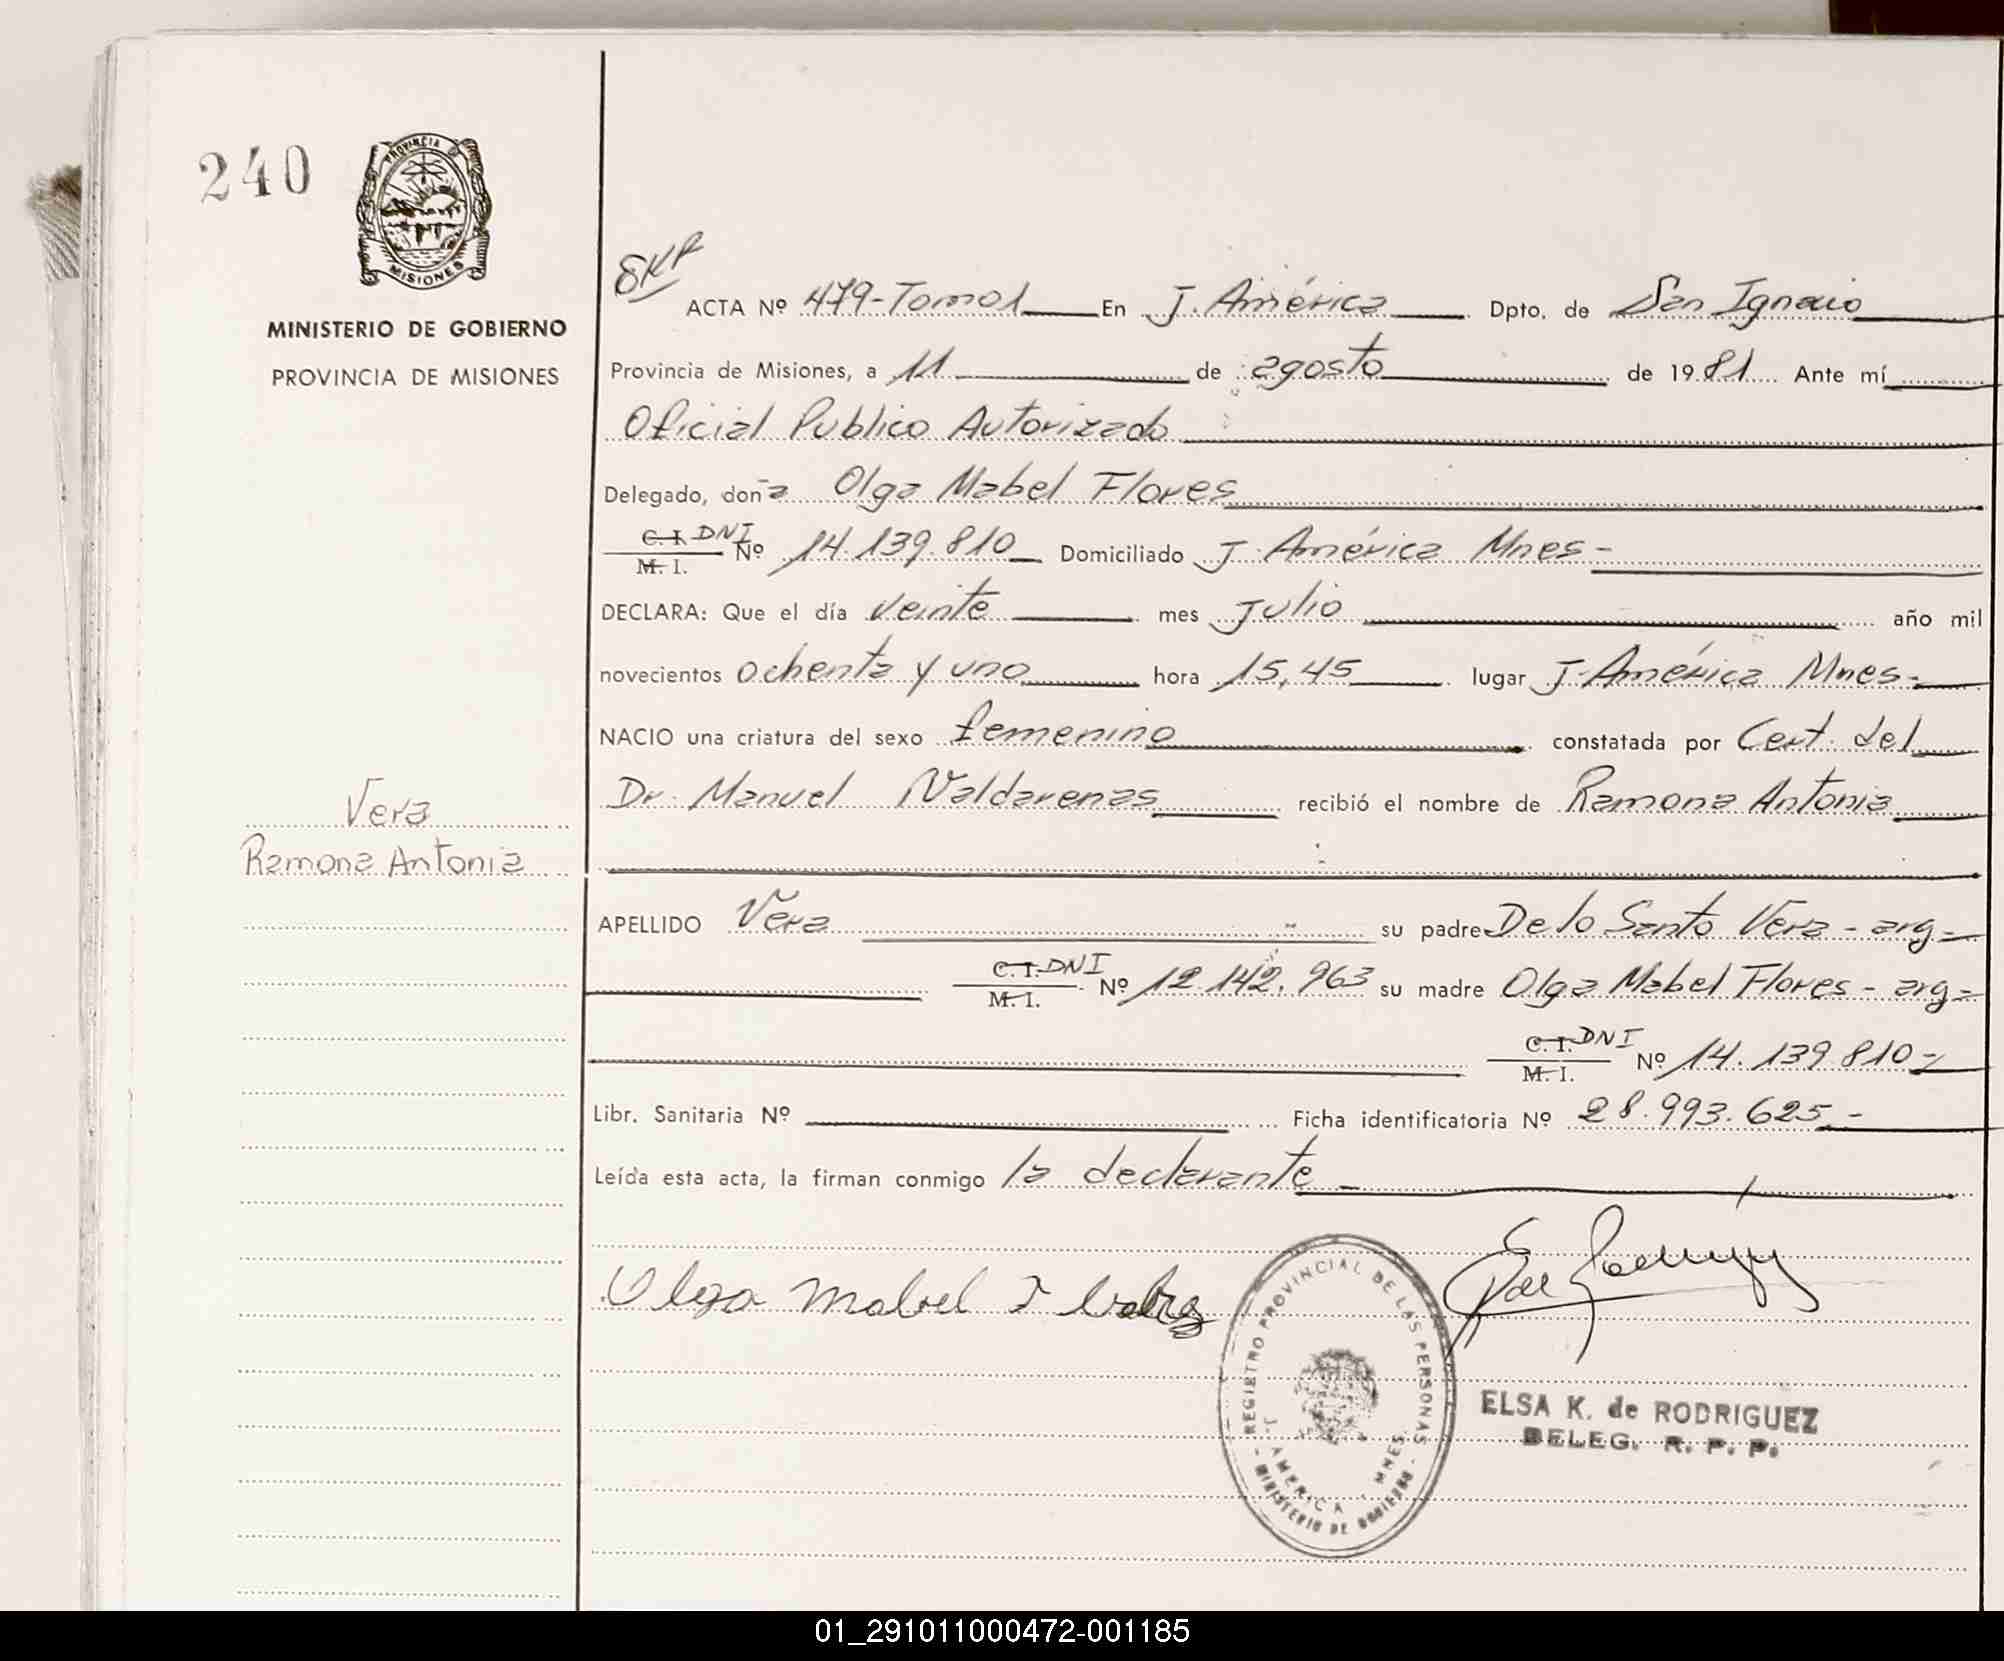 240
PROVINCIA DE
MISIONES
MINISTERIO DE GOBIERNO
PROVINCIA DE MISIONES
Vera
Ramona Antonia
ACTA Nº 479-Tomo1 En J. América Dpto. de San Ignacio
Provincia de Misiones, a 11 de agosto de 1981 Ante mí
Oficial Publico Autorizado
Delegado, don-a Olga Mabel Flores
C. I. DNI
M. I. Nº 14.139.810 Domiciliado J. América Mnes-
DECLARA: Que el día veinte mes Julio año mil
novecientos ochenta y uno hora 15,45 lugar J. América Mnes-
NACIO una criatura del sexo femenino constatada por Cert. del
Dr. Manuel Valdarenas recibió el nombre de Ramona Antonia
APELLIDO Vera su padre De lo Santo Vera - arg-
C. I. DNI
M. I. Nº 12.142.963 su madre Olga Mabel Flores - arg-
C. I. DNI
M. I. Nº 14.139.810-
Libr. Sanitaria Nº Ficha identificatoria Nº 28.993.625.-
Leída esta acta, la firman conmigo la declarante -
Olga Mabel
REGISTRO PROVINCIAL DE LAS PERSONAS
J. AMERICA - MNES.
MINISTERIO DE GOBIERNO
ELSA K. de RODRIGUEZ
DELEG. R. P. P.
01_291011000472-001185